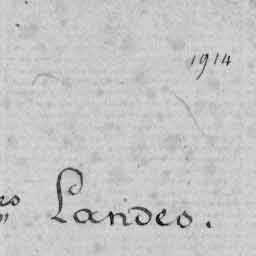 1914
Landes.